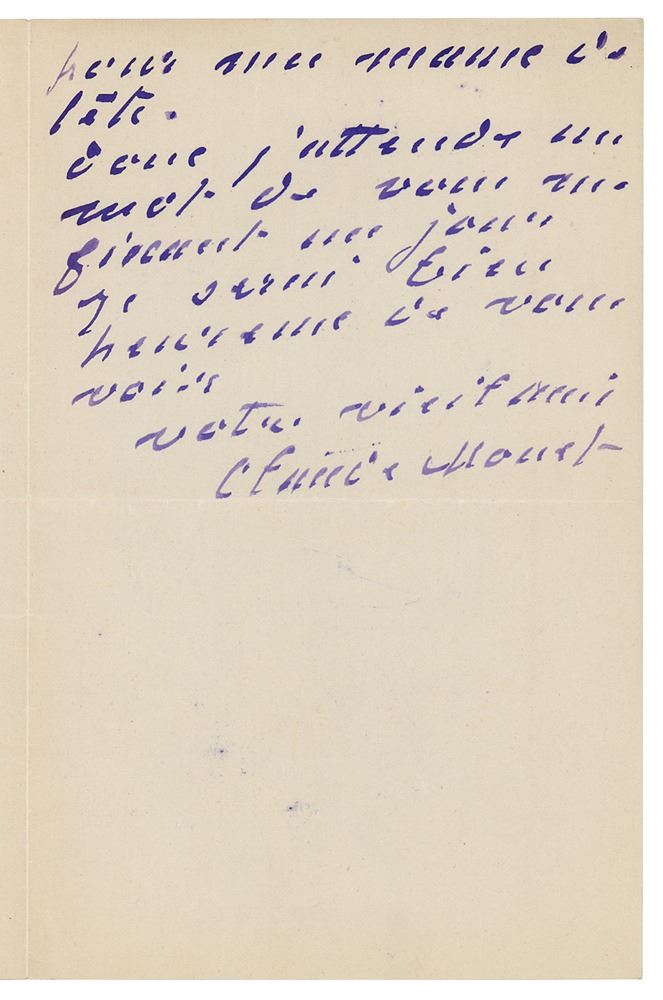 pour mes maux de
tête.
donc j'attends un
mot de vous me
fixant un jour
je serai bien
heureuse de vous
voir
votre vieil ami
Claude Monet